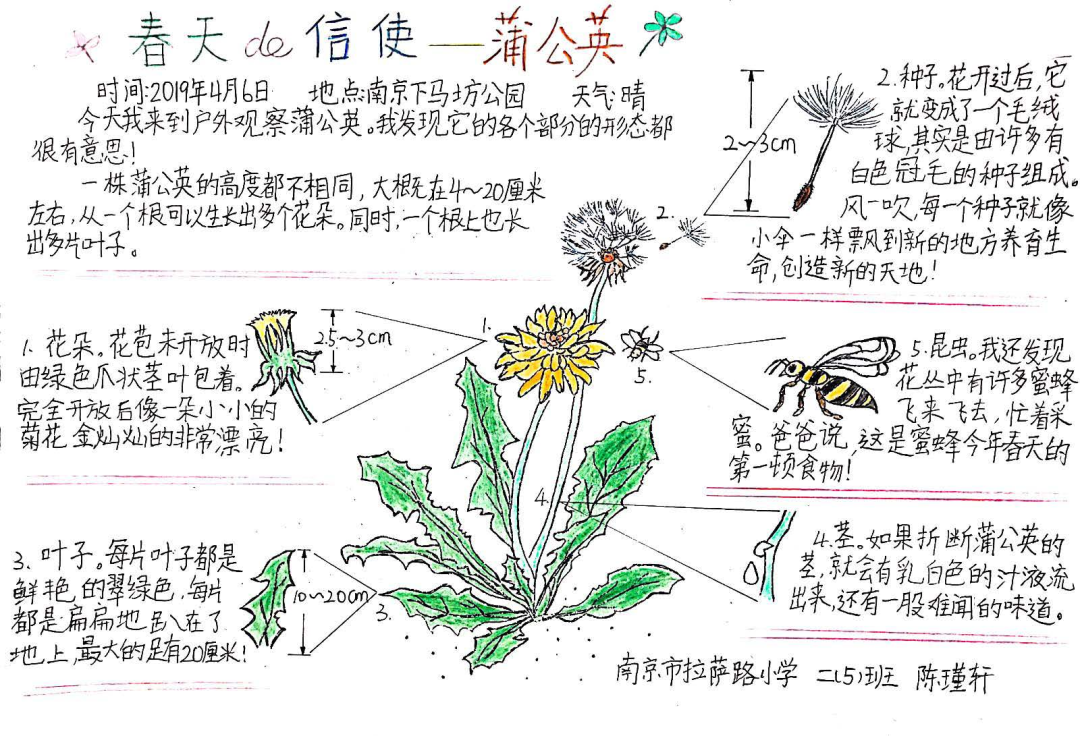 春天de信使——蒲公英
时间:2019年4月6日 地点:南京下马坊公园 天气:晴
今天我来到户外观察蒲公英。我发现它的各个部分的形态都
很有意思!
一株蒲公英的高度都不相同,大概在4~20厘米
左右,从一个根可以生长出多个花朵。同时,一个根上也长
出多片叶子。
2~3cm
2.
2.种子。花开过后,它
就变成了一个毛绒
球,其实是由许多有
白色冠毛的种子组成。
风一吹,每一个种子就像
小伞一样飘到新的地方养育生
命,创造新的天地!
1. 花朵。花苞未开放时
由绿色爪状茎叶包着。
完全开放后像一朵小小的
菊花 金灿灿的非常漂亮!
2.5~3cm
1.
5.
5.昆虫。我还发现
花丛中有许多蜜蜂
飞来飞去,忙着采
蜜。爸爸说,这是蜜蜂今年春天的
第一顿食物!
3. 叶子。每片叶子都是
鲜艳的翠绿色,每片
都是扁扁地趴在了
地上,最大的足有20厘米!
10~20cm
3.
4.
4.茎。如果折断蒲公英的
茎,就会有乳白色的汁液流
出来,还有一股难闻的味道。
南京市拉萨路小学 二(5)班 陈瑾轩